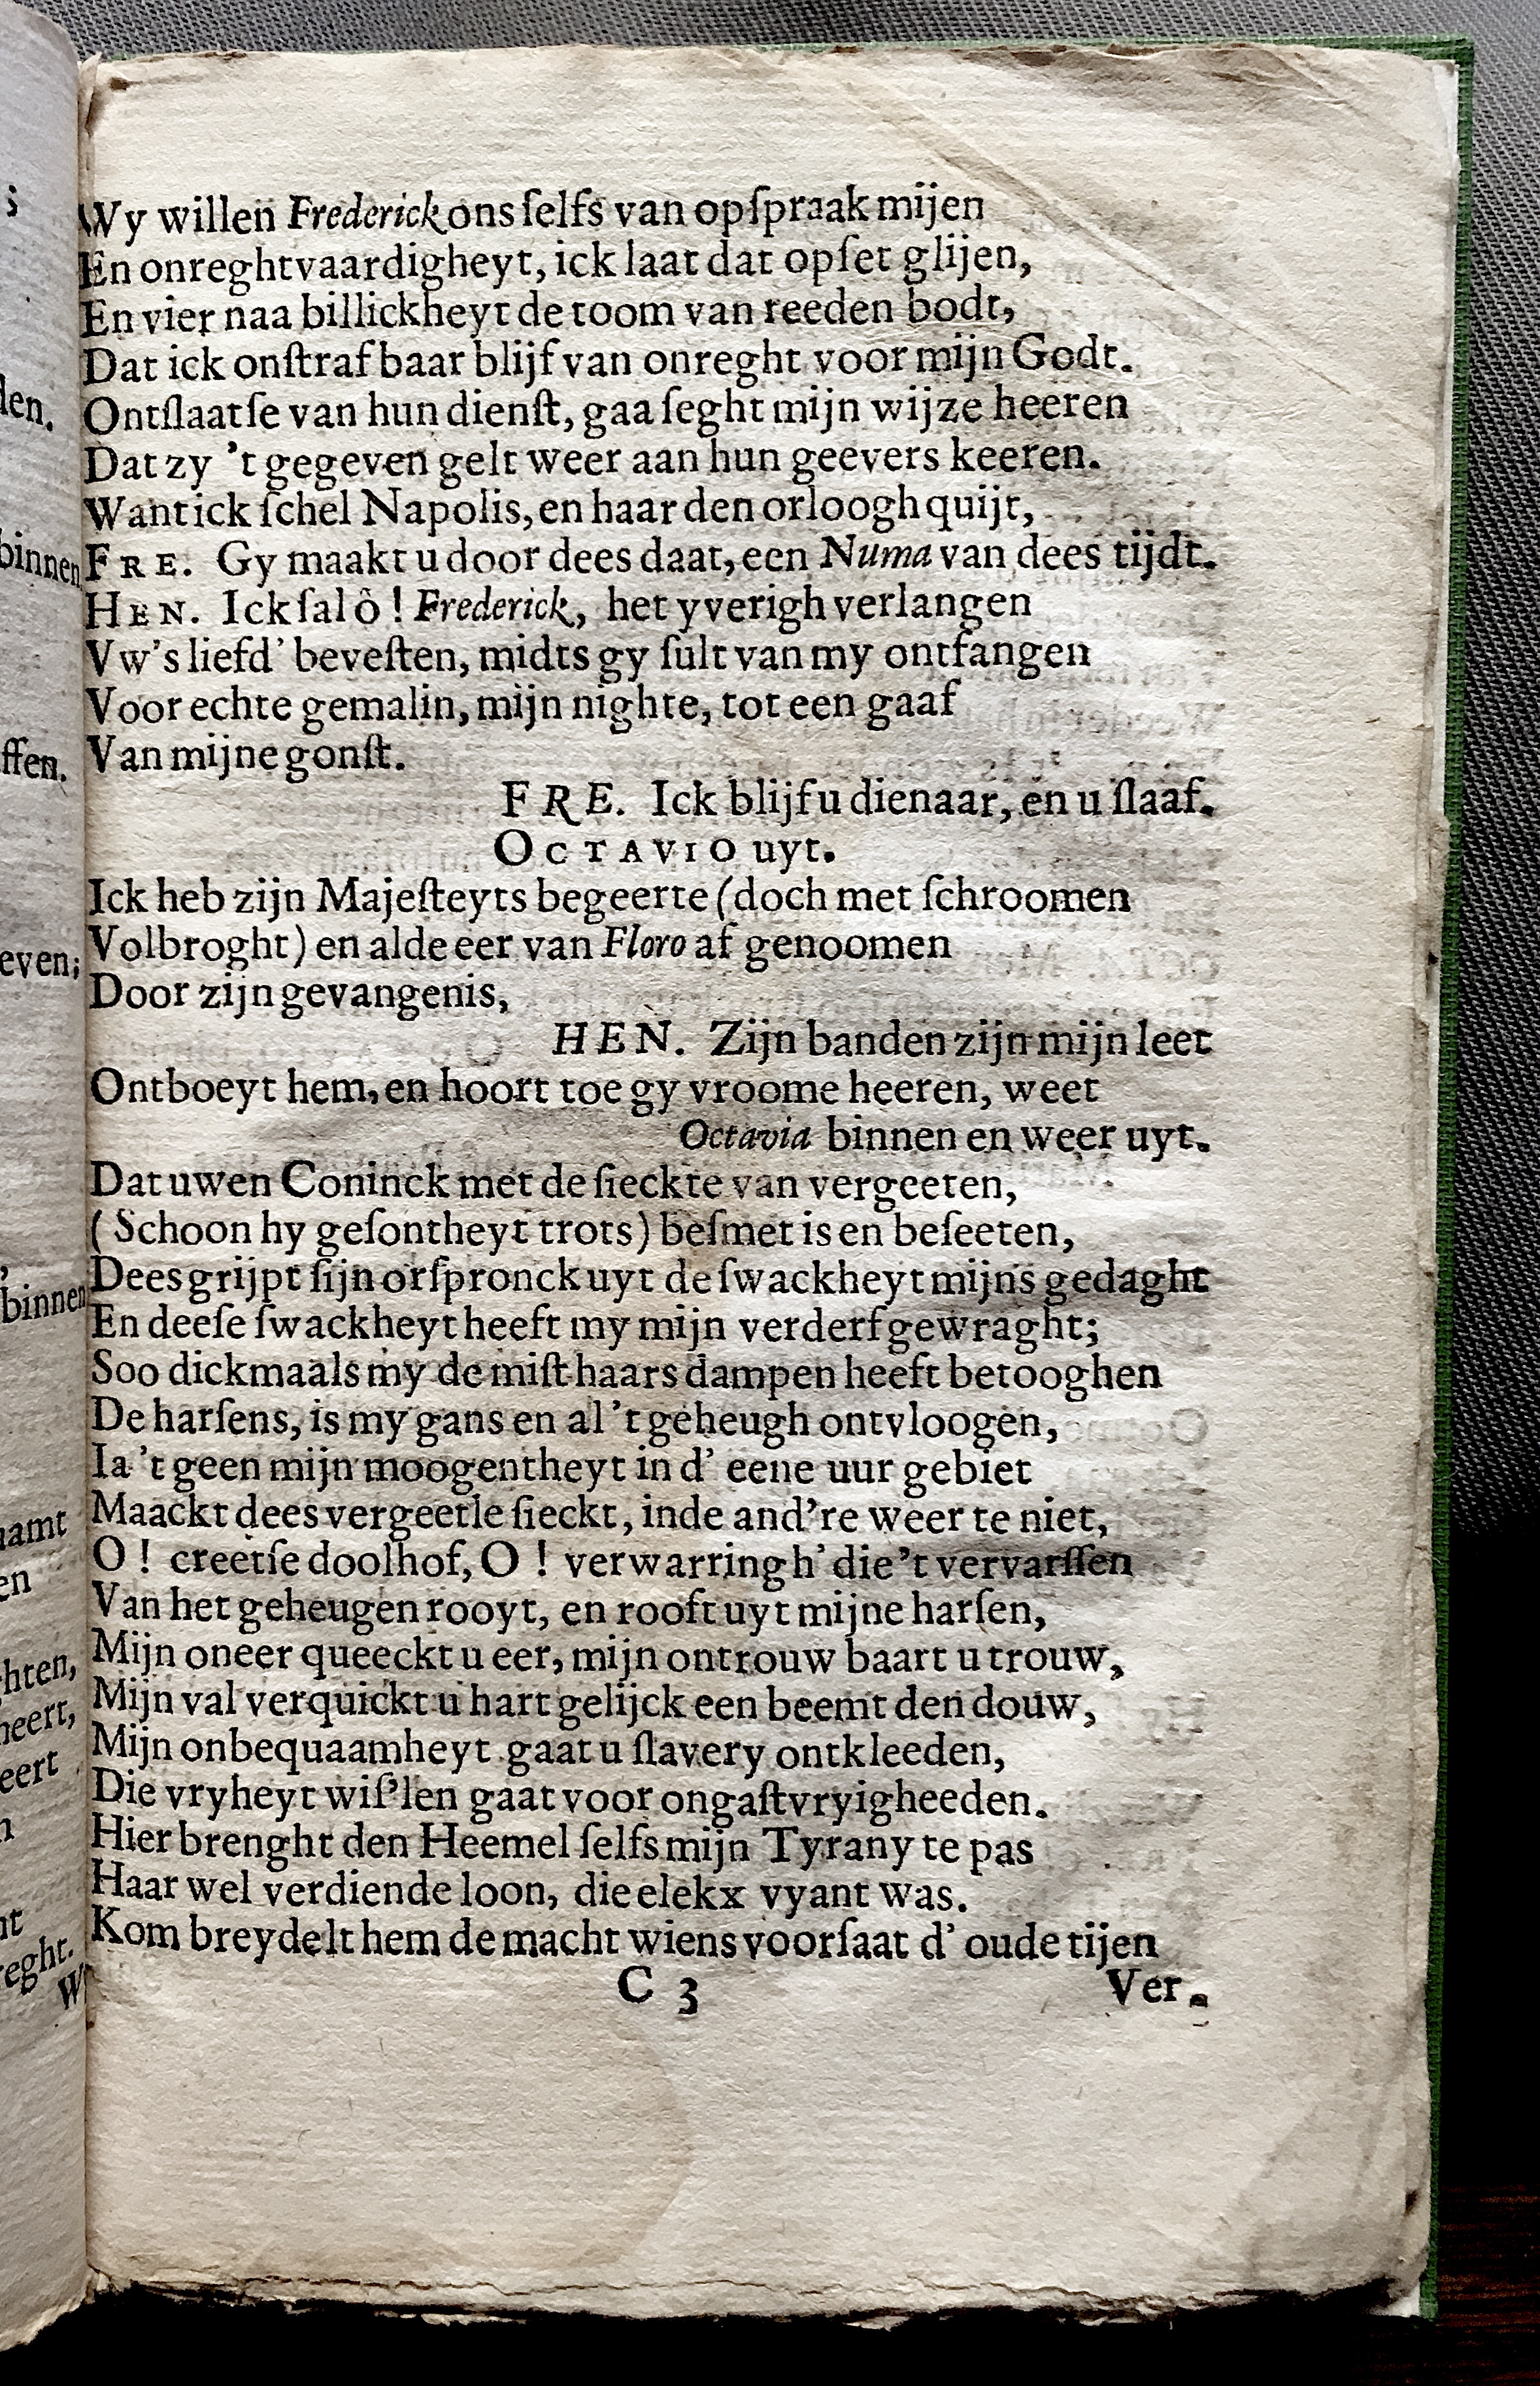 Wy willen Frederick ons ſelfs van opſpraak mijen
En onreghtvaardigheyt, ick laat dat opſet glijen,
En vier naa billickheyt de toom van reeden bodt,
Dat ick onſtrafbaar blijf van onreght voor mijn Godt.
Ontſlaatſe van hun dienſt, gaa ſeght mijn wijze heeren
Dat zy 't gegeven gelt weer aan hun geevers keeren.
Want ick ſchel Napolis, en haar den orloogh quijt,
FRE. Gy maakt u door dees daat, een Numa van dees tijdt.
HEN. Ick ſal ô! Frederick, het yverigh verlangen
Vw's liefd' beveſten, midts gy ſult van my ontfangen
Voor echte gemalin, mijn nighte, tot een gaaf
Van mijne gonſt.
FRE. Ick blijf u dienaar, en u ſlaaf.
OCTAVIO uyt.
Ick heb zijn Majeſteyts begeerte (doch met ſchroomen
Volbroght) en al de eer van Floro af genoomen
Door zijn gevangenis,
HEN. Zijn banden zijn mijn leet
Ontboeyt hem, en hoort toe gy vroome heeren, weet
Octavia binnen en weer uyt.
Dat uwen Coninck met de ſieckte van vergeeten,
(Schoon hy geſontheyt trots) beſmet is en beſeeten,
Dees grijpt ſijn orſpronck uyt de ſwackheyt mijns gedaght
En deeſe ſwackheyt heeft my mijn verderf gewraght;
Soo dickmaals my de miſt haars dampen heeft betooghen
De harſens, is my gans en al 't geheugh ontvloogen,
Ia 't geen mijn moogentheyt in d' eene uur gebiet
Maackt dees vergeetle ſieckt, inde and're weer te niet,
O! creetſe doolhof, O! verwarringh' die 't vervarſſen
Van het geheugen rooyt, en rooft uyt mijne harſen,
Mijn oneer queeckt u eer, mijn ontrouw baart u trouw,
Mijn val verquickt u hart gelijck een beemt den douw,
Mijn onbequaamheyt gaat u ſlavery ontkleeden,
Die vryheyt wiſ'len gaat voor ongaſtvryigheeden.
Hier brenght den Heemel ſelfs mijn Tyrany te pas
Haar wel verdiende loon, die elekx vyant was.
Kom breydelt hem de macht wiens voorſaat d' oude tijen
C 3
Ver-